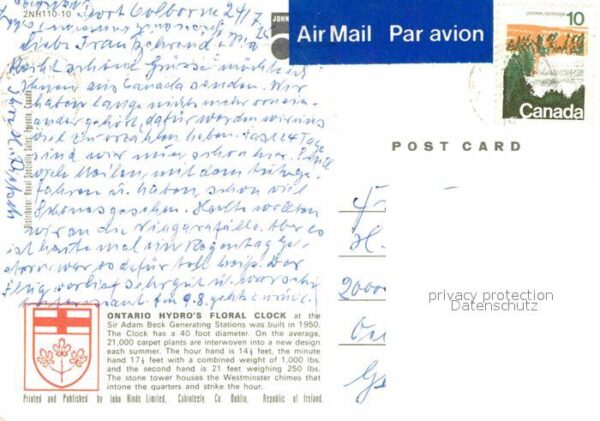 2NH110-10
Port Colborne 24/7.
JOHN
Air Mail Par avion
postes/postage 10
Canada
POST CARD
Recht schöne Grüsse möchten
Ihnen aus Canada senden. Wir
haben lange nichts mehr vonein-
ander gehört, dafür werden wir uns
viel zu erzählen haben. Fast 14 Tage
sind wir nun schon hier.
viele Meilen, mit dem
fahren u. haben schon viel
Schönes gesehen. Heute wollten
wir an die Niagarafälle. Aber es
ist heute mal ein Regentag
war es dafür toll heiß. Der
Flug verlief sehr gut u. war sehr
interessant. Am 9.8. geht's zurück
Distributor: Royal Specialty Sales, Toronto, Canada
privacy protection
Datenschutz
ONTARIO HYDRO'S FLORAL CLOCK at the
Sir Adam Beck Generating Stations was built in 1950.
The Clock has a 40 foot diameter. On the average,
21,000 carpet plants are interwoven into a new design
each summer. The hour hand is 14½ feet, the minute
hand 17½ feet with a combined weight of 1,000 lbs.
and the second hand is 21 feet weighing 250 lbs.
The stone tower houses the Westminster chimes that
intone the quarters and strike the hour.
Printed and Published by John Hinde Limited, Cabinteely, Co Dublin, Republic of Ireland.